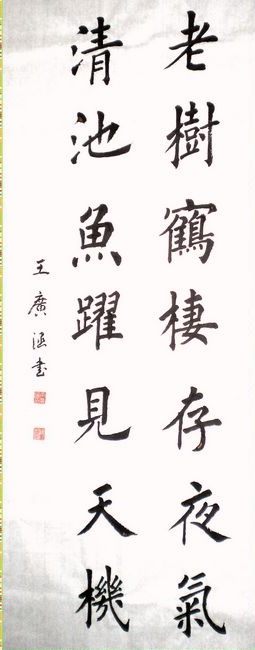 老樹鶴棲存夜氣
清池魚躍見天機
王廣涵书